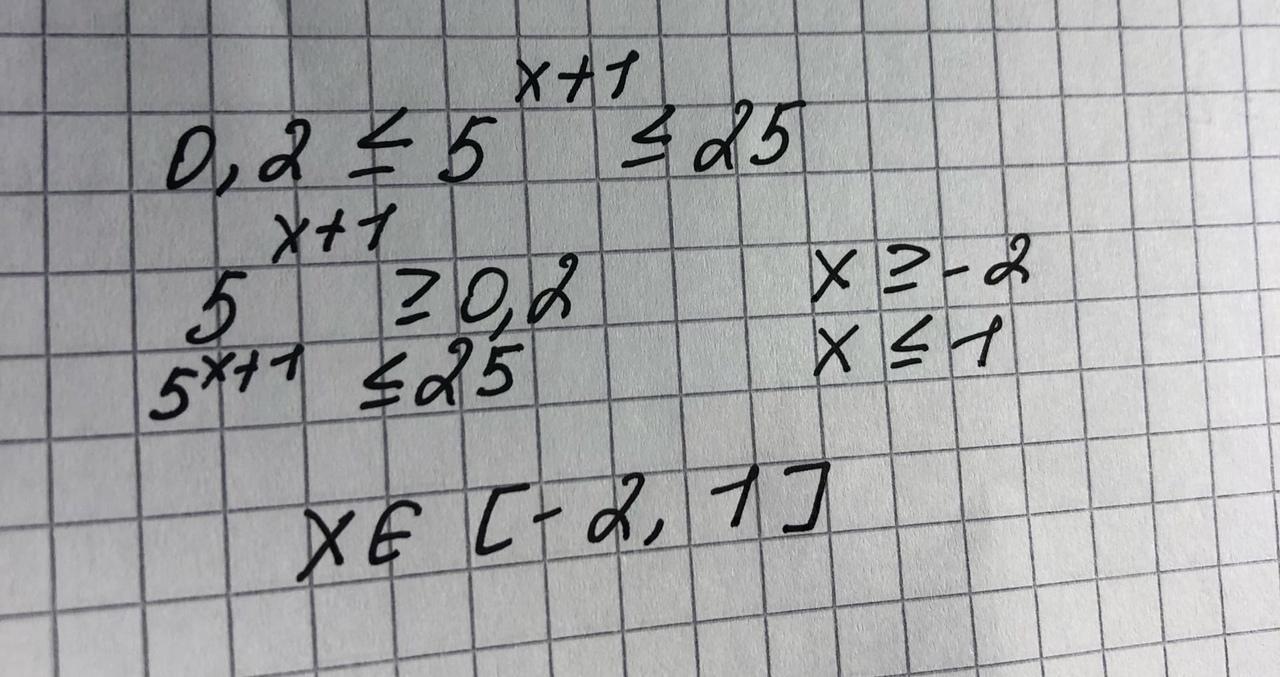 0,2 ≤ 5^{x+1} ≤ 25
5^{x+1} ≥ 0,2
x ≥ -2
5^{x+1} ≤ 25
x ≤ 1
x ∈ [-2, 1]